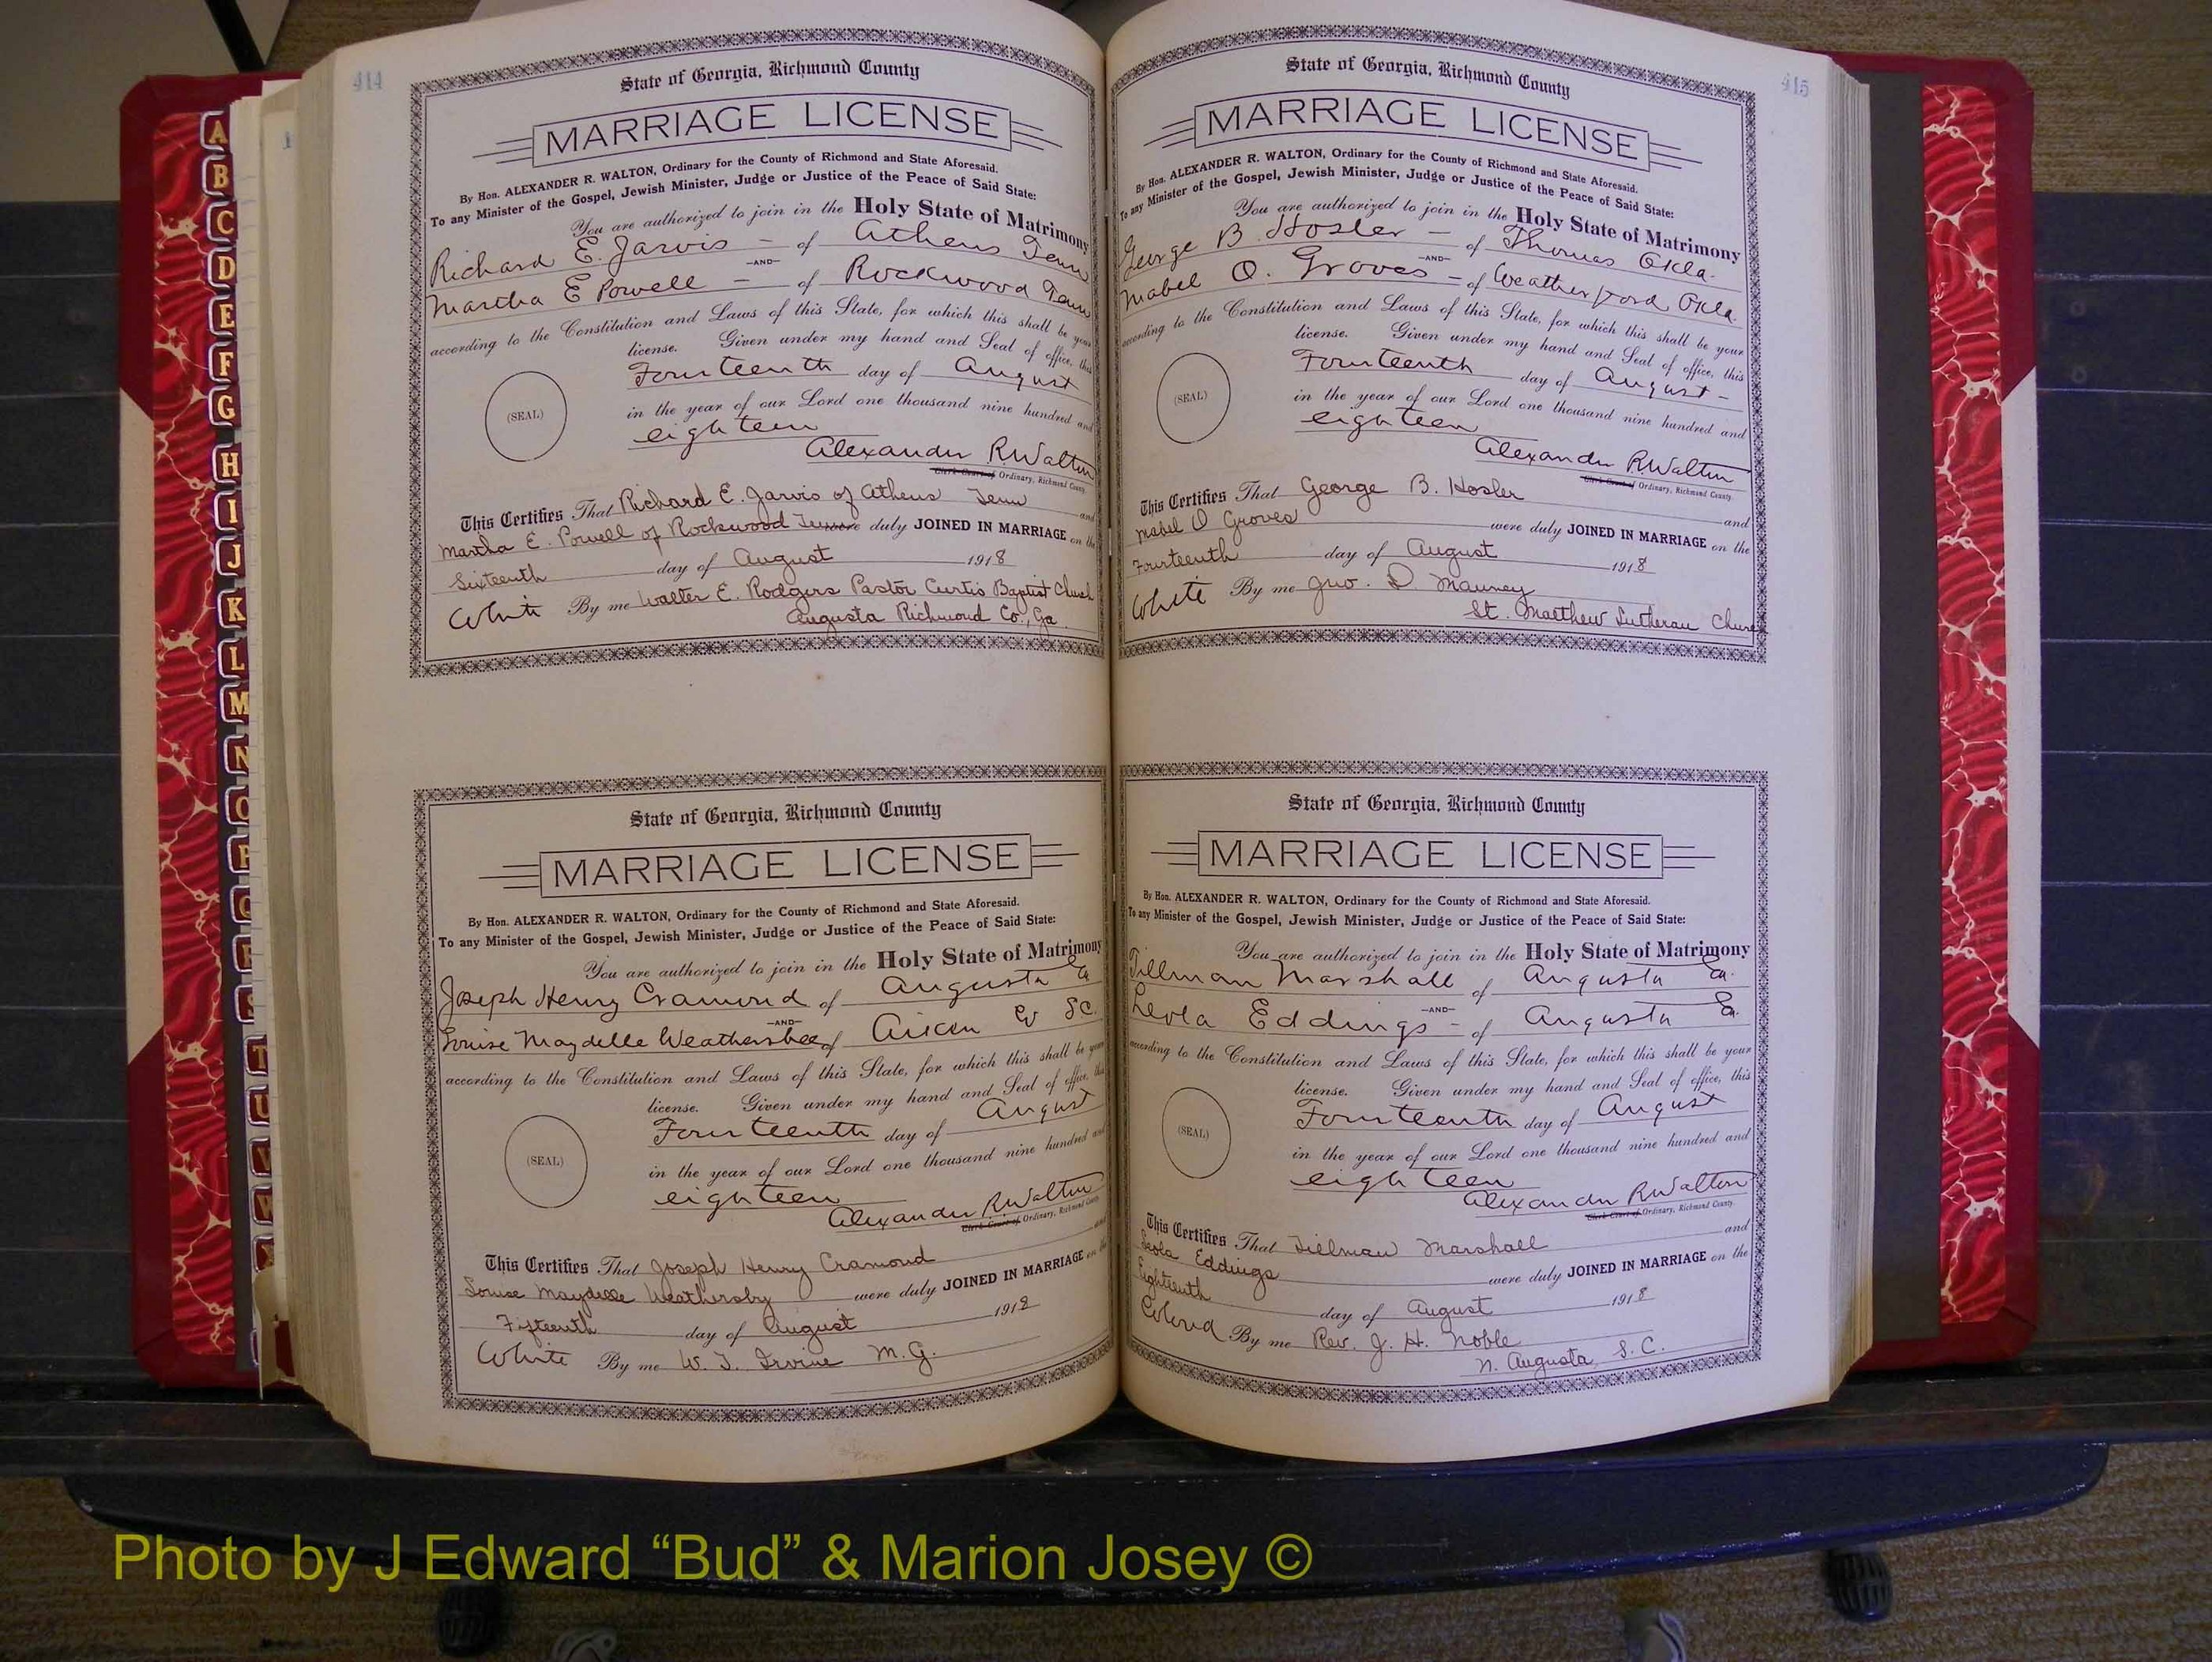 414
State of Georgia, Richmond County
MARRIAGE LICENSE
By Hon. ALEXANDER R. WALTON, Ordinary for the County of Richmond and State Aforesaid.
To any Minister of the Gospel, Jewish Minister, Judge or Justice of the Peace of Said State:
You are authorized to join in the Holy State of Matrimony
Richard E. Jarvis - of Athens Tenn
—AND—
Martha E Powell - of Rockwood Tenn
according to the Constitution and Laws of this State, for which this shall be your
license. Given under my hand and Seal of office, this
Fourteenth day of August
(SEAL)
in the year of our Lord one thousand nine hundred and
eighteen
Alexander R. Walton
Clerk Court of Ordinary, Richmond County
This Certifies That Richard E. Jarvis of Athens Tenn and
Martha E. Powell of Rockwood Tenn were duly JOINED IN MARRIAGE on the
Sixteenth day of August 1918
White By me Walter E. Rodgers Pastor Curtis Baptist Church
Augusta Richmond Co., Ga.
State of Georgia, Richmond County
MARRIAGE LICENSE
By Hon. ALEXANDER R. WALTON, Ordinary for the County of Richmond and State Aforesaid.
To any Minister of the Gospel, Jewish Minister, Judge or Justice of the Peace of Said State:
You are authorized to join in the Holy State of Matrimony
Joseph Henry Cramond of Augusta Ga
—AND—
Louise Maydelle Weathersbee of Aiken Co SC.
according to the Constitution and Laws of this State, for which this shall be your
license. Given under my hand and Seal of office, this
Fourteenth day of August
(SEAL)
in the year of our Lord one thousand nine hundred and
eighteen
Alexander R. Walton
Clerk Court of Ordinary, Richmond County
This Certifies That Joseph Henry Cramond and
Louise Maydelle Weathersby were duly JOINED IN MARRIAGE on the
Fifteenth day of August 1918
White By me W. T. Irvine M.G.
415
State of Georgia, Richmond County
MARRIAGE LICENSE
By Hon. ALEXANDER R. WALTON, Ordinary for the County of Richmond and State Aforesaid.
To any Minister of the Gospel, Jewish Minister, Judge or Justice of the Peace of Said State:
You are authorized to join in the Holy State of Matrimony
George B. Hosler - of Thomas Okla.
—AND—
Mabel O. Groves - of Weatherford Okla.
according to the Constitution and Laws of this State, for which this shall be your
license. Given under my hand and Seal of office, this
Fourteenth day of August -
(SEAL)
in the year of our Lord one thousand nine hundred and
eighteen
Alexander R. Walton
Clerk Court of Ordinary, Richmond County
This Certifies That George B. Hosler and
Mabel O Groves were duly JOINED IN MARRIAGE on the
Fourteenth day of August 1918
White By me Jno. D. Mauney
St. Matthew Lutheran Church
State of Georgia, Richmond County
MARRIAGE LICENSE
By Hon. ALEXANDER R. WALTON, Ordinary for the County of Richmond and State Aforesaid.
To any Minister of the Gospel, Jewish Minister, Judge or Justice of the Peace of Said State:
You are authorized to join in the Holy State of Matrimony
Tillman Marshall of Augusta Ga.
—AND—
Leola Eddings - of Augusta Ga.
according to the Constitution and Laws of this State, for which this shall be your
license. Given under my hand and Seal of office, this
Fourteenth day of August
(SEAL)
in the year of our Lord one thousand nine hundred and
eighteen
Alexander R. Walton
Clerk Court of Ordinary, Richmond County
This Certifies That Tillman Marshall and
Leola Eddings were duly JOINED IN MARRIAGE on the
Eighteenth day of August 1918
Colored By me Rev. J. H. Noble
N. Augusta, S. C.
A
B
C
D
E
F
G
H
I
J
K
L
M
N
O
P
Q
R
S
T
U
V
W
Photo by J Edward “Bud” & Marion Josey ©